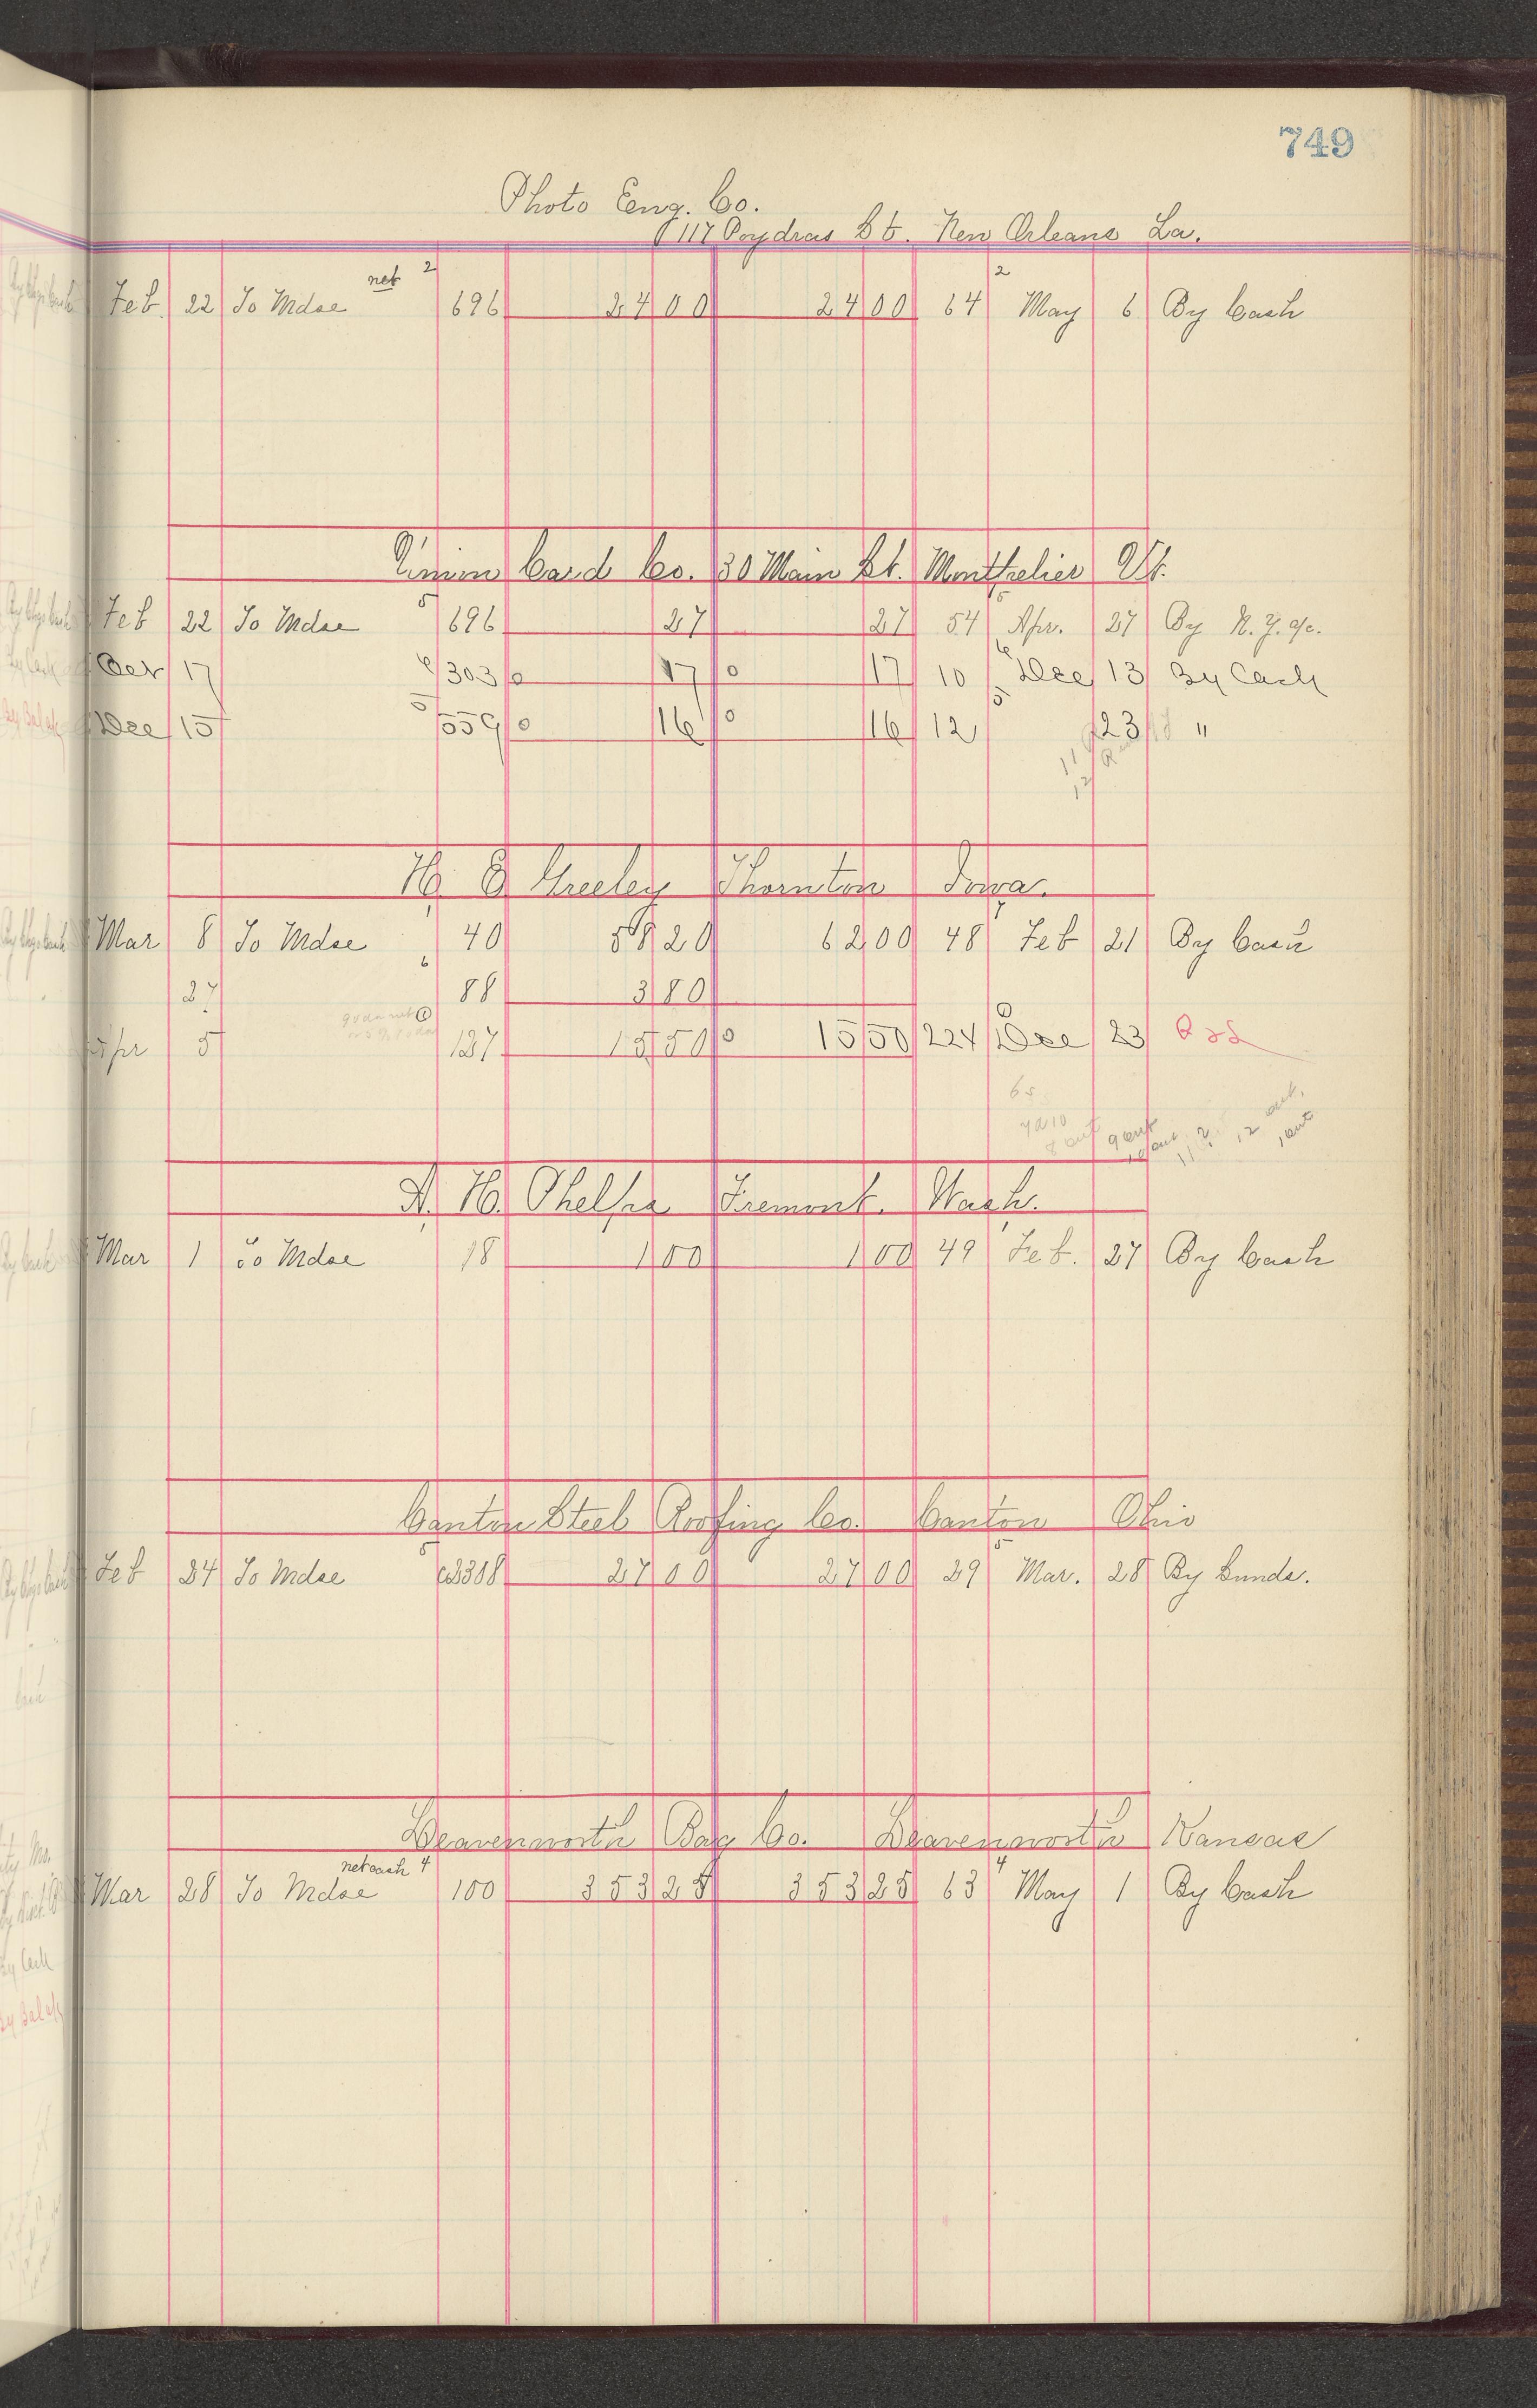 749
Photo Eng. Co.
117 Poydras St. New Orleans La.
net 2 2
Feb. 22 To Mdse 696 24 00 24 00 64 May 6 By Cash
Union Card Co. 30 Main St. Montpelier Vt.
Feb 22 To Mdse 5 696 27 27 54 5 Apr. 27 By N.Y. a/c.
Oct 17 6 303 0 17 0 17 10 6 Dec 13 By Cash
Dec 15 5 559 0 16 0 16 12 5 23 "
11
12
H. O. Greeley Thornton Iowa.
Mar 8 To Mdse 1 40 58 20 62 00 48 1 Feb 21 By Cash
27 6 88 3 80
Apr 5 1 137 15 50 0 15 50 224 Dec 23 P&L
9 ack 12 1 ack
A. H. Phelps Fremont. Wash.
Mar 1 To Mdse 18 1 00 1 00 49 Feb. 27 By Cash
Canton Steel Roofing Co. Canton Ohio
Feb 24 To Mdse 5 318 27 00 27 00 29 5 Mar. 28 By Sunds.
Leavenworth Bag Co. Leavenworth Kansas
net cash 4 4
Mar 28 To Mdse 100 353 25 353 25 63 May 1 By Cash